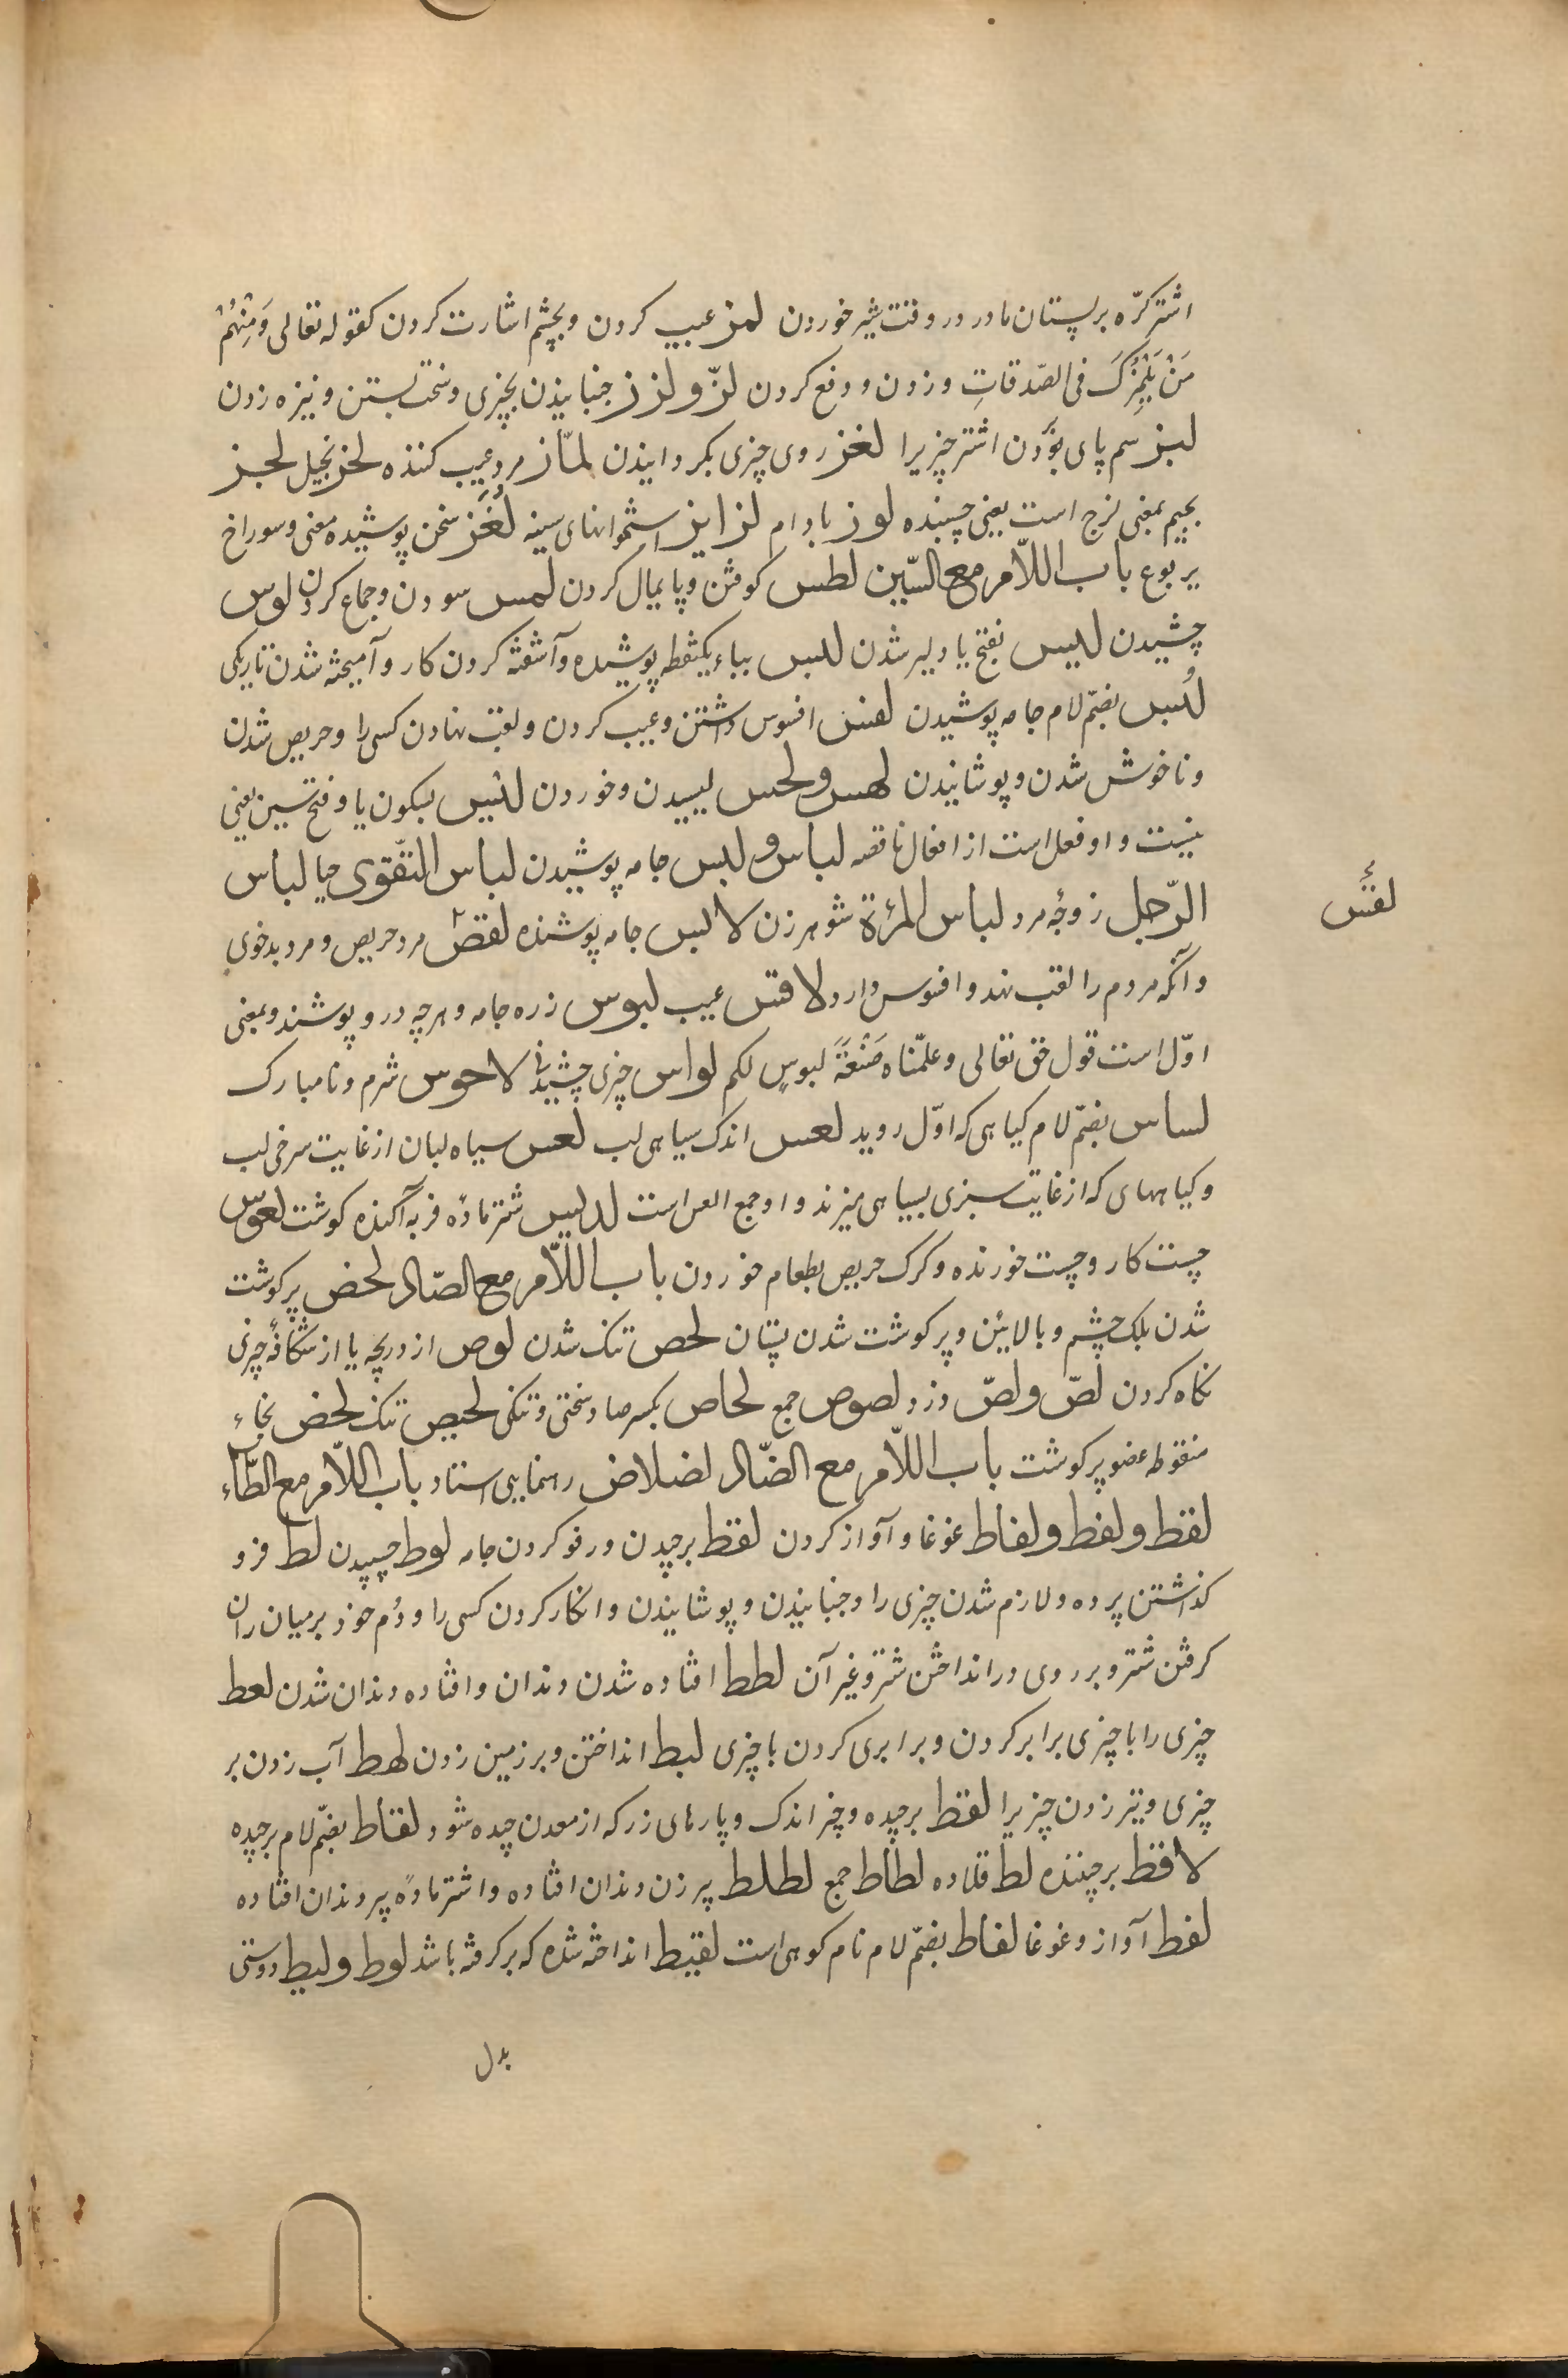 اشتر کرّه بر پستان مادر در وقت شیر خوردن لمز عیب کردن و بچشم اشارت کردن کقوله تعالی وَمِنْهُمْ
مَنْ یَلْمِزُکَ فی الصّدقاتِ و زدن و دفع کردن لزّ و لزز جنبانیدن بچیزی و سخت بستن و نیزه زدن
لبز سم پای زدن اشتر چیزیرا لغز روی چیزی بکردانیدن لمّاز مرد عیب کننده لحز بخیل لجز
بجیم بمعنی لزج است یعنی چسبنده لوز بادام لزایز استخوانهای سینه لُغَز سخن پوشیده معنی و سوراخ
یربوع باب اللّام مع السّین لطس کوفتن و پایمال کردن لمس سودن و جماع کردن لوس
چشیدن لیس بفتح یا دلیر شدن لبس بباء یکنقطه پوشیده و آشفته کردن کار و آمیخته شدن تاریکی
لُبس بضمّ لام جامه پوشیدن لقس افسوس داشتن و عیب کردن و لقب نهادن کسی را و حریص شدن
و ناخوش شدن و پوشانیدن لهس و لحس لیسیدن و خوردن لیس بسکون یا و فتح سین یعنی
نیست و او فعل است از افعال ناقصه لباس و لبس جامه پوشیدن لباس التّقوی حیا لباس
الرّجل زوجٔه مرد لباس المرٔة شوهر زن لابس جامه پوشنده لقس مرد حریص و مرد بدخوی
لقس
و آنکه مردم را لقب نهد و افسوس دارد لاقس عیب لبوس زره جامه و هرچه در و پوشند و بمعنی
اوّل است قول حق تعالی و علّمناه صَنْعَةَ لبوسٍ لکم لواس چیزی چشیدنی لاحوس شرم و نامبارک
لساس بضمّ لام کیاهی که اوّل روید لعس اندک سیاهی لب لعس سیاه لبان از غایت سرخی لب
و کیاههای که از غایت سبزی بسیاهی میزند و او جمع العس است لدیس شتر مادٔه فربه آکنده کوشت لعوس
چست کار و چست خورنده و کرک حریص بطعام خوردن باب اللّام مع الصّاد لخص پر کوشت
شدن پلک چشم و بالائین و پر کوشت شدن پستان لحص تنک شدن لوص از دریچه یا از شکافٔه چیزی
نکاه کردن لصّ و لصّ دزد لصوص جمع لحاص بکسر صاد سختی و تنکی لحیص تنک لخص بخاء
منقوطه عضو پر کوشت باب اللّام مع الضّاد لضلاض رهنمایی استاد باب اللّام مع الطّاء
لغط و لغط و لغاط غوغا و آواز کردن لقط برچیدن و رفو کردن جامه لوط چسپیدن لط فرو
کذاشتن پرده و لازم شدن چیزی را و جنبانیدن و پوشانیدن و انکار کردن کسی را و دُم خود بر میان ران
کرفتن شتر و بر روی در انداختن شتر و غیر آن لطط افتاده شدن دندان و افتاده دندان شدن لعط
چیزی را با چیزی برابر کردن و برابری کردن با چیزی لبط انداختن و بر زمین زدن لهط آب زدن بر
چیزی و تیر زدن چیزیرا لقط برچیده و چیز اندک و پارهای زر که از معدن چیده شود لقاط بضمّ لام برچیده
لاقط برچیننده لط قلاده لطاط جمع لطلط پیر زن دندان افتاده و اشتر مادٔه پیر دندان افتاده
لغط آواز و غوغا لغاط بضمّ لام نام کوهی است لقیط انداخته شده که برکرفته باشد لوط و لیط دوستی
بدل